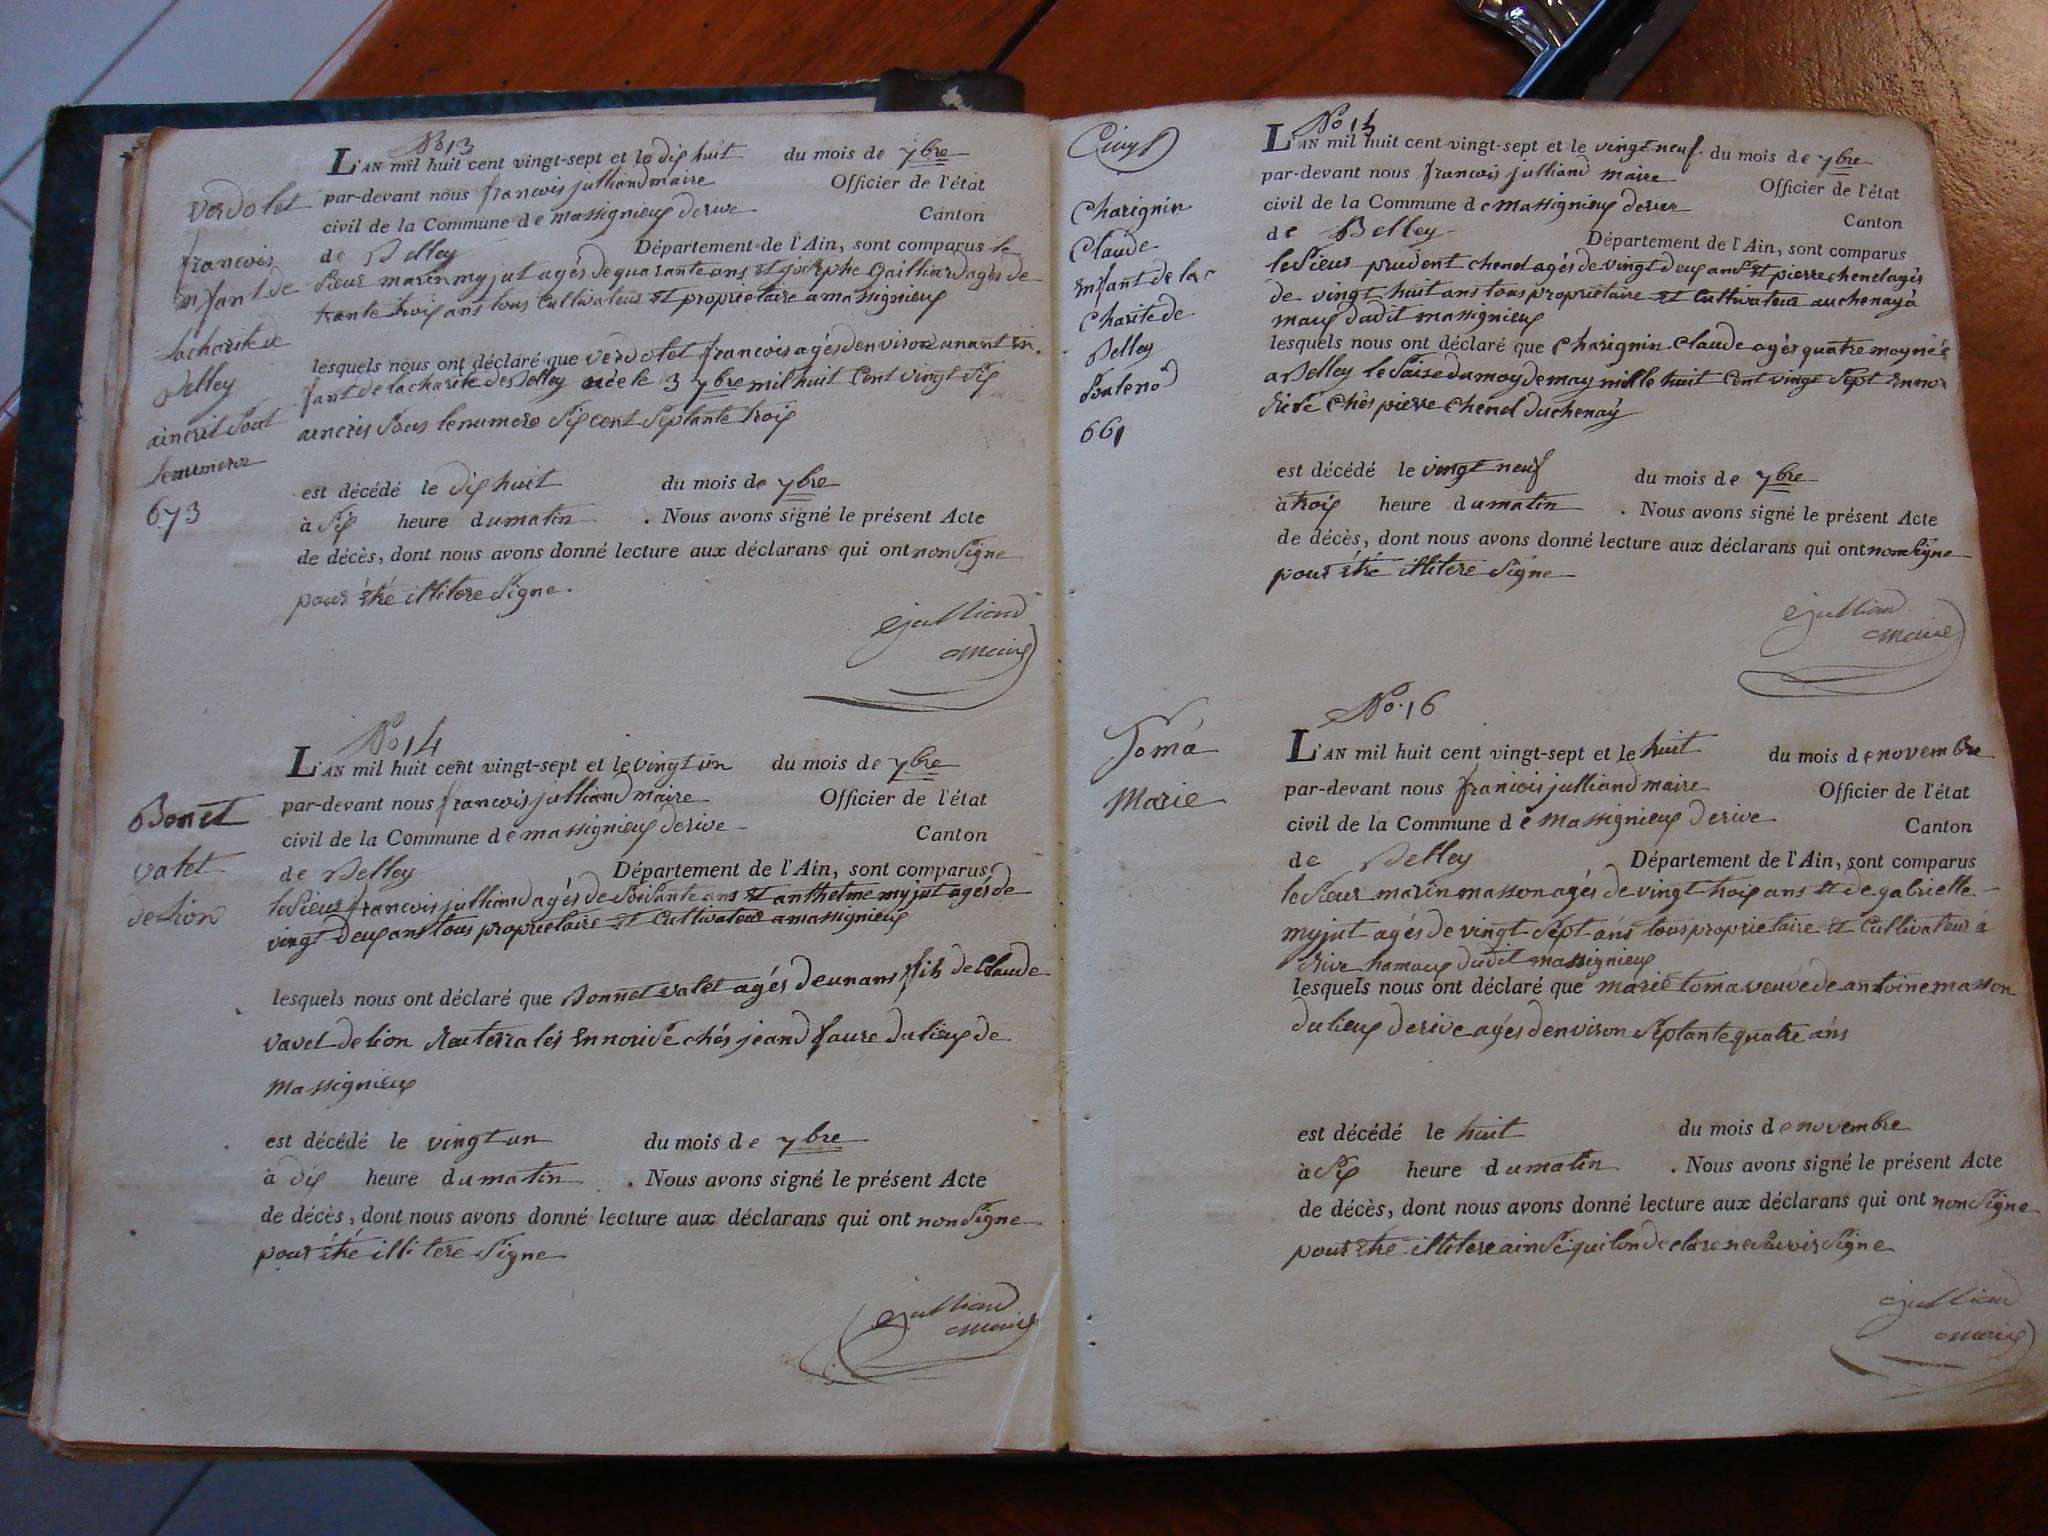 No 13
L'AN mil huit cent vingt-sept et le dix huit du mois de 7bre
par-devant nous francois julliand maire Officier de l'état
civil de la Commune de massignieux derive Canton
de Belley Département de l'Ain, sont comparus le
sieur marin myjut agés de quarante ans et josephe Gailliard agés de
trante trois ans tous cultivateur et proprietaire a massignieux
lesquels nous ont déclaré que verdolet francois agés denviron unant en
fant de la charité de Belley née le 3 7bre mil huit cent vingt six
aincris sous le numero six cent septante trois
est décédé le dix huit du mois de 7bre
à six heure du matin . Nous avons signé le présent Acte
de décès, dont nous avons donné lecture aux déclarans qui ont non signe
pour étré illitere signe
julliand
maire
verdolet
francois
enfant de
la charité de
Belley
aincrit sout
le numeror
673
No 14
L'AN mil huit cent vingt-sept et le vingt un du mois de 7bre
par-devant nous francois julliand maire Officier de l'état
civil de la Commune de massignieux derive Canton
de Belley Département de l'Ain, sont comparus
le sieur francois julliand agés de soixante ans et anthelme myjut agés de
vingt deux ans tous proprietaire et cultivateur a massignieux
lesquels nous ont déclaré que Bonnet valet agés deunans fils de Claude
vavet de lion en nourise chés jeand faure du lieux de
massignieux
est décédé le vingt un du mois de 7bre
à dix heure du matin . Nous avons signé le présent Acte
de décès, dont nous avons donné lecture aux déclarans qui ont non signe
pour étré illitere signe
julliand
maire
Bonet
valet
de lion
No 15
L'AN mil huit cent vingt-sept et le vingt neuf du mois de 7bre
par-devant nous francois julliand maire Officier de l'état
civil de la Commune de massignieux derive Canton
de Belley Département de l'Ain, sont comparus
le sieur prudent chenel agés de vingt deux ans et pierre chenel agés
de vingt huit ans tous proprietaire et cultivateur au chenay à
maux dudit massignieux
lesquels nous ont déclaré que Charignin Claude agés quatre moy née
a Belley le saize du moy de may mille huit cent vingt sept en no
chés pierre chenel duchenay
est décédé le vingt neuf du mois de 7bre
à trois heure du matin . Nous avons signé le présent Acte
de décès, dont nous avons donné lecture aux déclarans qui ont non signe
pour étré illitere signe
julliand
maire
Charignin
Claude
enfant de la
charité de
Belley
661
No 16
L'AN mil huit cent vingt-sept et le huit du mois de novembre
par-devant nous francois julliand maire Officier de l'état
civil de la Commune de massignieux derive Canton
de Belley Département de l'Ain, sont comparus
le sieur marin masson agés de vingt trois ans et de gabrielle
myjut agés de vingt sept ans tous proprietaire et cultivateur à
derive hamaux dudit massignieux
lesquels nous ont déclaré que marie toma veuve de antoine masson
du lieux derive agés denviron septante quatre ans
est décédé le huit du mois de novembre
à six heure du matin . Nous avons signé le présent Acte
de décès, dont nous avons donné lecture aux déclarans qui ont non signe
pour étré illitere ainsi qui lon declare ne savoir signe
julliand
maire
Toma
Marie